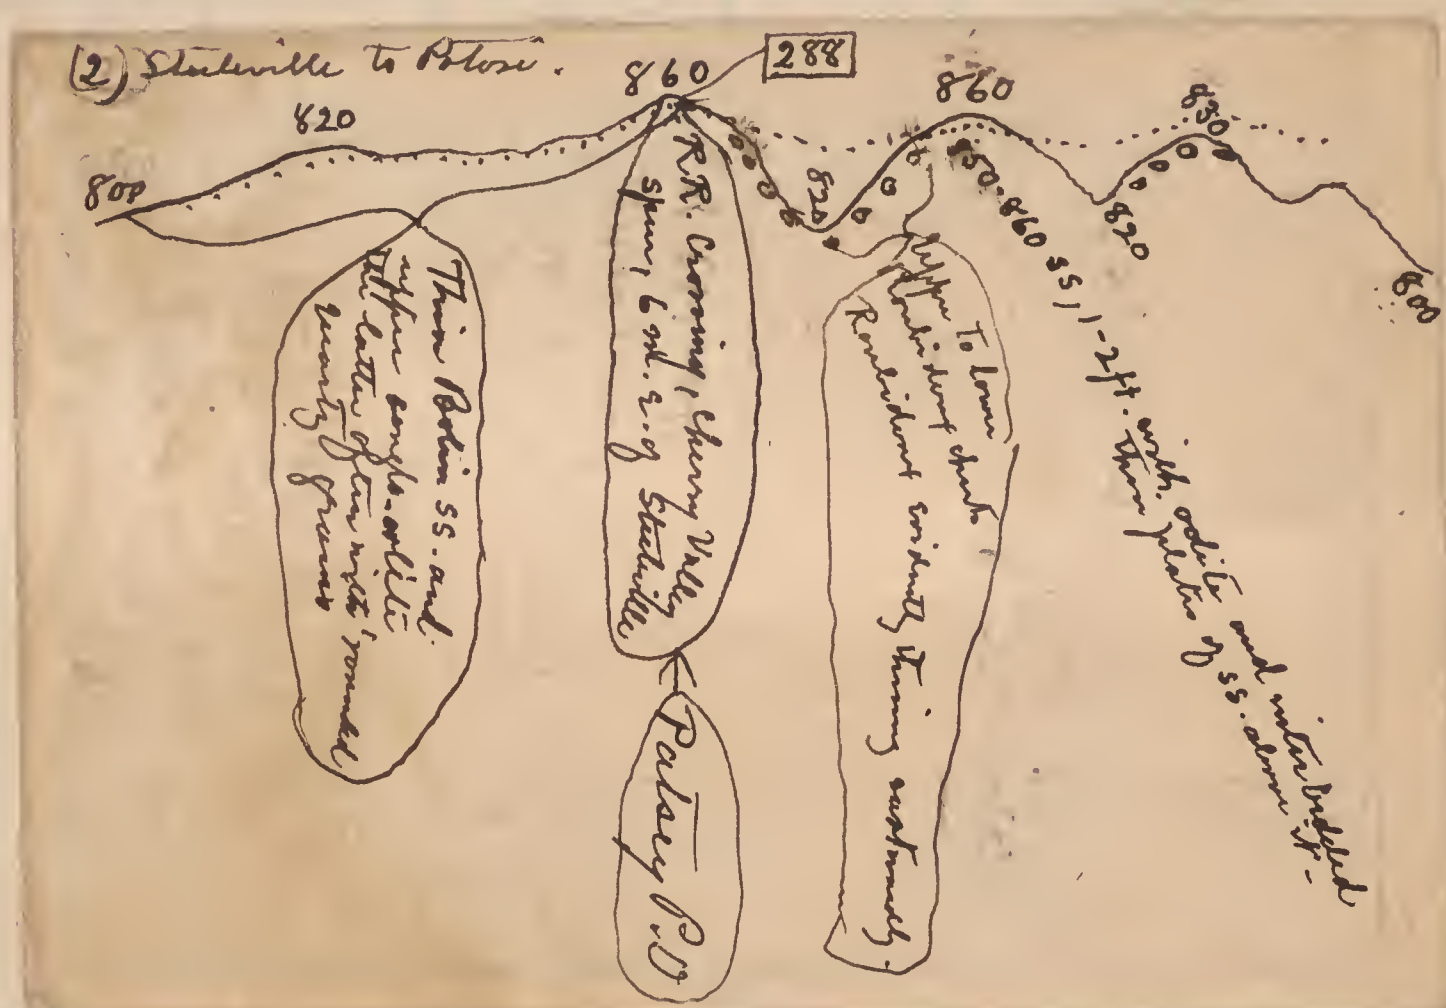 (2) Steeleville to Potosi.
288
800
820
860
820
860
830
820
800
Thin Bolin ss. and
upper congl.-oolite
the latter often with rounded
quartz grains
R.R. Crossing, Cherry Valley
spur, 6 mi. E. of Steeleville
Patsey P.O
Upper to lower
Roubidoux chert
Roubidoux evidently thinning eastwardly.
850-860 ss, 1-2 ft. with oolite and interbedded
thin plates of ss. above it-